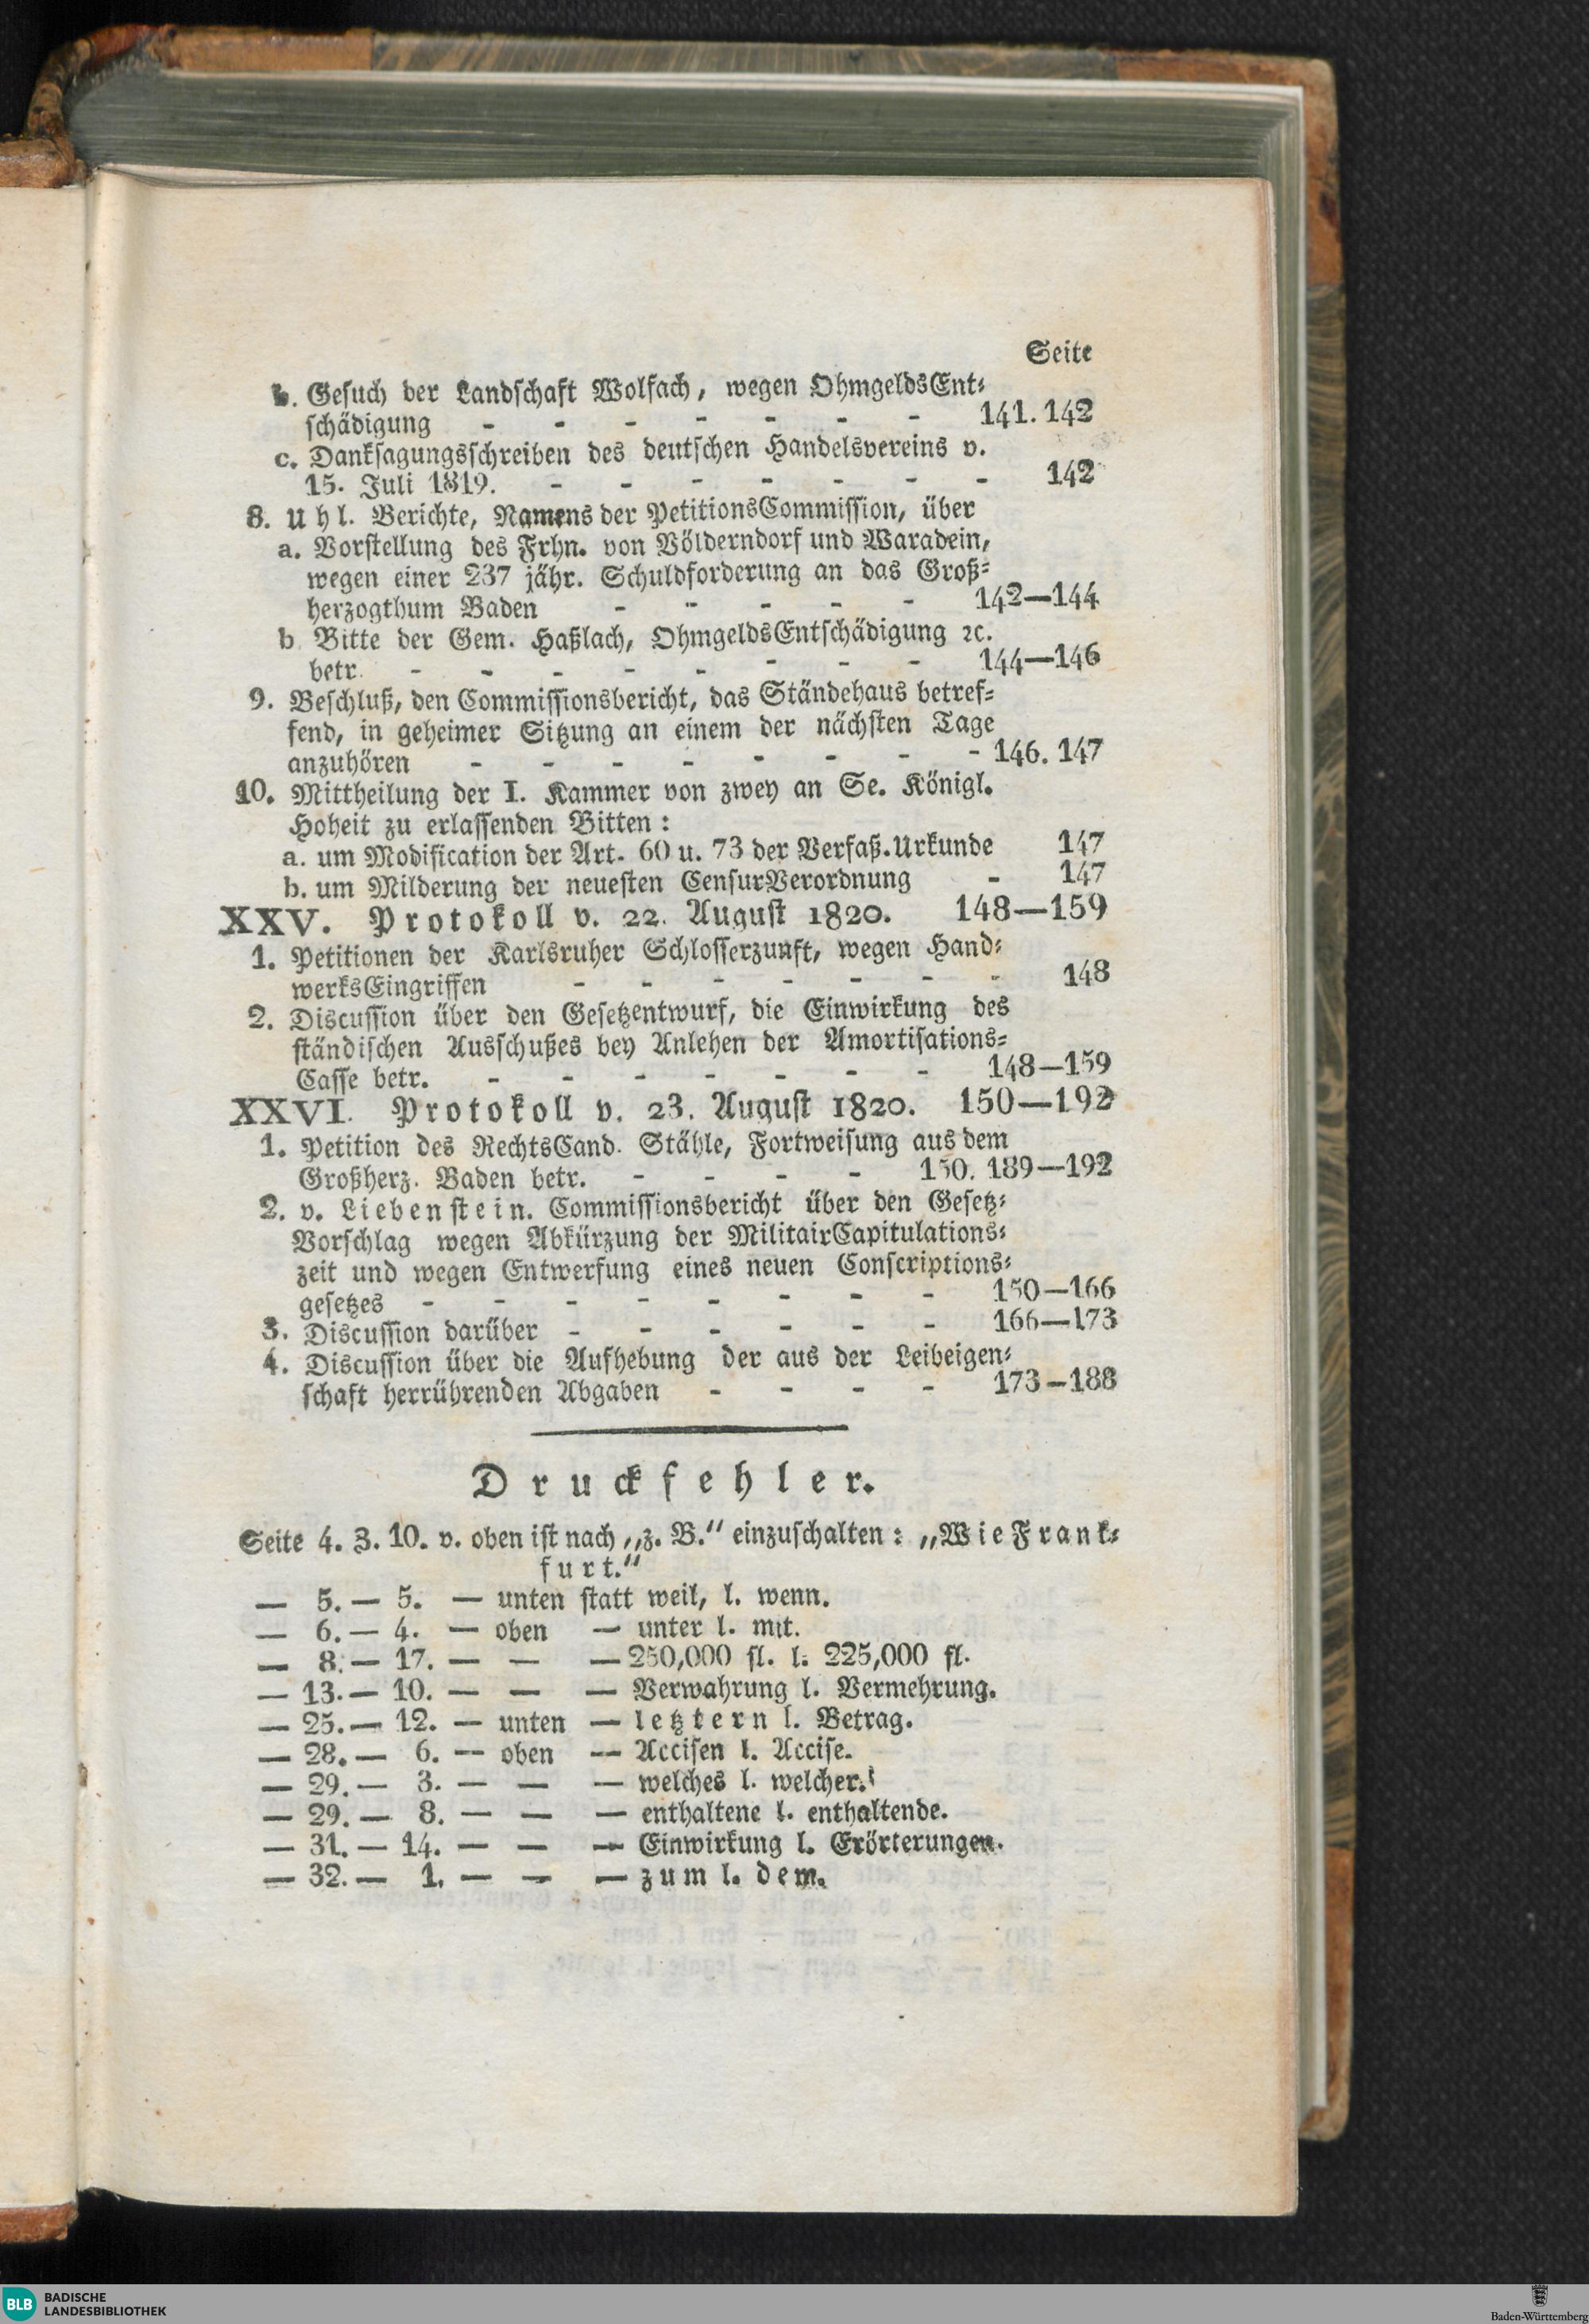 Seite
b. Gesuch der Landschaft Wolfach, wegen OhmgeldsEnt⸗
schädigung - - - - - - - 141. 142
c. Danksagungsschreiben des deutschen Handelsvereins v.
15. Juli 1819. - - - - - - - 142
8. Uhl. Berichte, Namens der PetitionsCommission, über
a. Vorstellung des Frhn. von Völderndorf und Waradein,
wegen einer 237 jähr. Schuldforderung an das Groß⸗
herzogthum Baden - - - - - 142—144
b Bitte der Gem. Haßlach, OhmgeldsEntschädigung ꝛc.
betr. - - - - - - - - 144—146
9. Beschluß, den Commissionsbericht, das Ständehaus betref⸗
fend, in geheimer Sitzung an einem der nächsten Tage
anzuhören - - - - - - - - 146. 147
10. Mittheilung der I. Kammer von zwey an Se. Königl.
Hoheit zu erlassenden Bitten:
a. um Modification der Art. 60 u. 73 der Verfaß.Urkunde 147
b. um Milderung der neuesten CensurVerordnung - 147
XXV. Protokoll v. 22. August 1820. 148—159
1. Petitionen der Karlsruher Schlosserzunft, wegen Hand⸗
werksEingriffen - - - - - - - 148
2. Discussion über den Gesetzentwurf, die Einwirkung des
ständischen Ausschußes bey Anlehen der Amortisations⸗
Casse betr. - - - - - - - 148—159
XXVI. Protokoll v. 23. August 1820. 150—192
1. Petition des RechtsCand. Stähle, Fortweisung aus dem
Großherz. Baden betr. - - - - 150. 189—192
2. v. Liebenstein. Commissionsbericht über den Gesetz⸗
Vorschlag wegen Abkürzung der MilitairCapitulations⸗
zeit und wegen Entwerfung eines neuen Conscriptions⸗
gesetzes - - - - - - - - 150—166
3. Discussion darüber - - - - - - 166—173
4. Discussion über die Aufhebung der aus der Leibeigen⸗
schaft herrührenden Abgaben - - - - 173—188
Druckfehler.
Seite 4. Z. 10. v. oben ist nach „z. B.“ einzuschalten: „Wie Frank⸗
furt.“
— 5. — 5. — unten statt weil, l. wenn.
— 6. — 4. — oben — unter l. mit.
— 8. — 17. — — — 250,000 fl. l. 225,000 fl.
— 13. — 10. — — — Verwahrung l. Vermehrung.
— 25. — 12. — unten — letztern l. Betrag.
— 28. — 6. — oben — Accisen l. Accise.
— 29. — 3. — — — welches l. welcher.
— 29. — 8. — — — enthaltene l. enthaltende.
— 31. — 14. — — — Einwirkung l. Erörterungen.
— 32. — 1. — — — zum l. dem.
BLB BADISCHE
LANDESBIBLIOTHEK
Baden-Württemberg